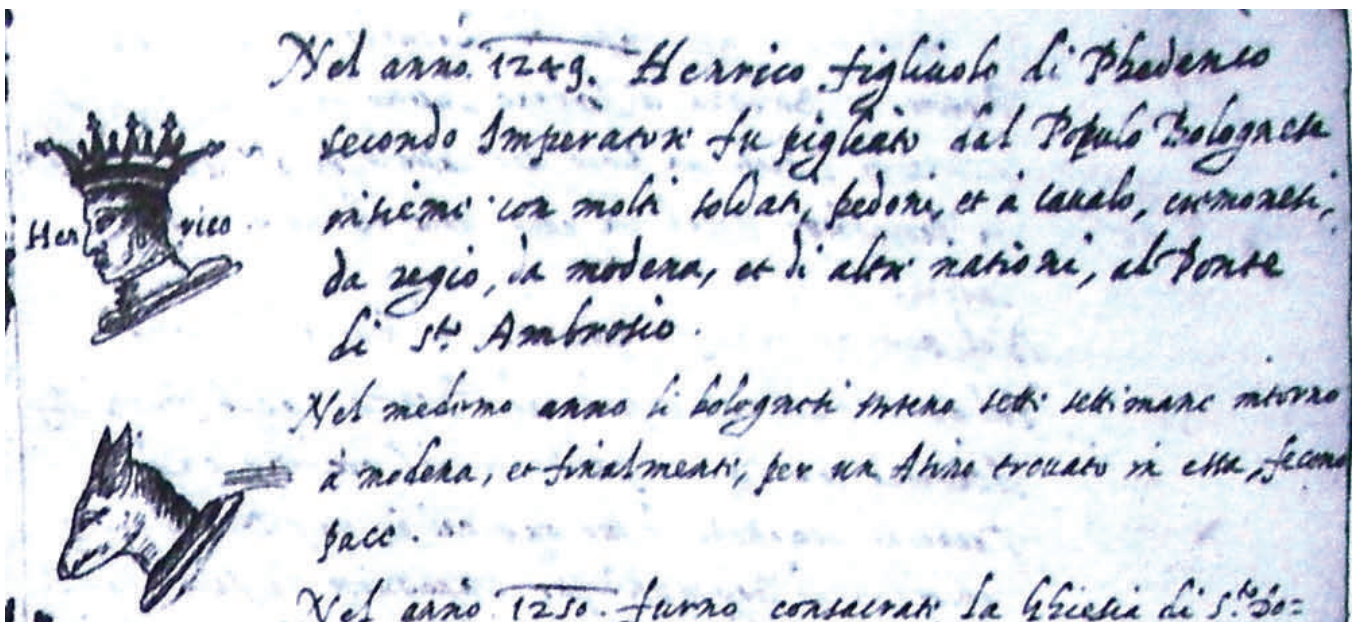 Nel anno. 1249. Henrico figliuolo di Phederico
secondo Imperatore fu pigliato dal Populo Bolognese
insieme con molti soldati, pedoni, et à cavalo, cremonesi,
Hen rico
da regio, da modena, et di altre nationi, al Ponte
di s.to Ambrosio.
Nel medemo anno li bolognesi setti settimane intorno
à modena, et finalmente, per un Asino trovato in essa, fecero
pace.
Nel anno. 1250. furno consacrate la Ghiesia di s.to Do=